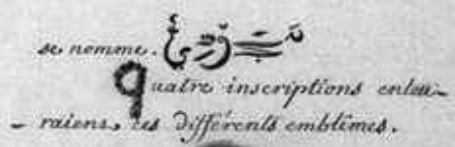 se nomme.
Quatre inscriptions entou-
- raiens, ces différents emblêmes.